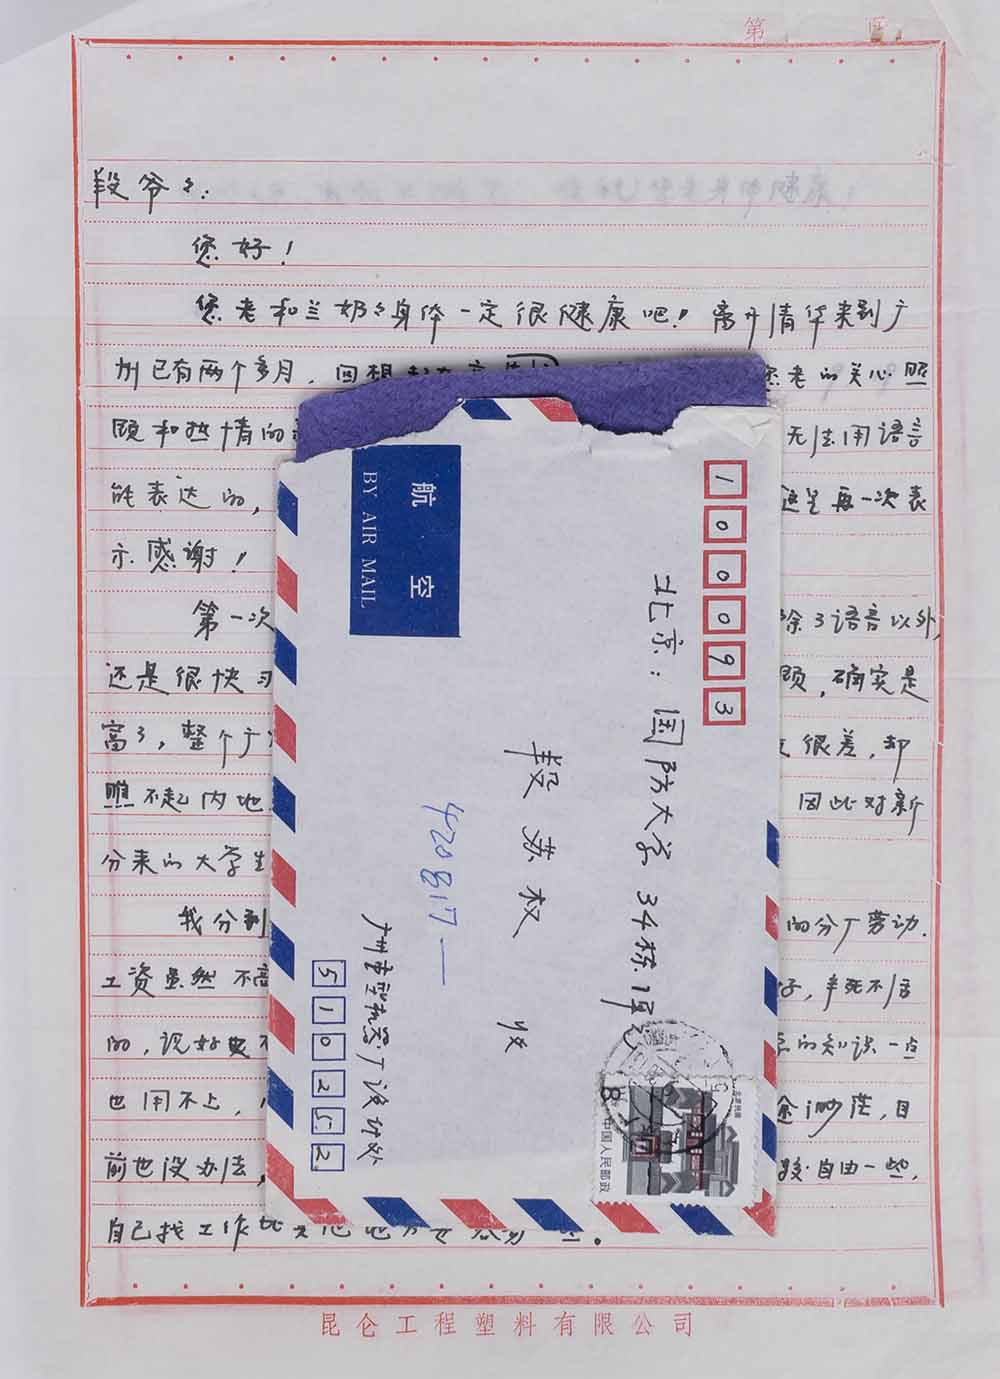 第 页
段爷々:
您好!
您老和兰奶々身体一定很健康吧!离开清华来到广
州已有两个多月,回想 老的关心照
顾和热情的 无法用语言
能表达的, 再一次表
示感谢!
第一次 除了语言以外,
还是很快习 顾,确实是
富了,整个广 很差,却
瞧不起内地 因此对新
分来的大学生
我分到 的分厂劳动.
工资虽然不高 半死不活
的,说好 的知识一点
也用不上, 渺茫,目
前也没办法, 自由一些,
自己找工作比其他地方 。
昆仑工程塑料有限公司
航空
BY AIR MAIL
100093
北京:国防大学34栋1单元
段苏权
收
420817—
广州市 厂设计处
510252
8
中国人民邮政
北京民居